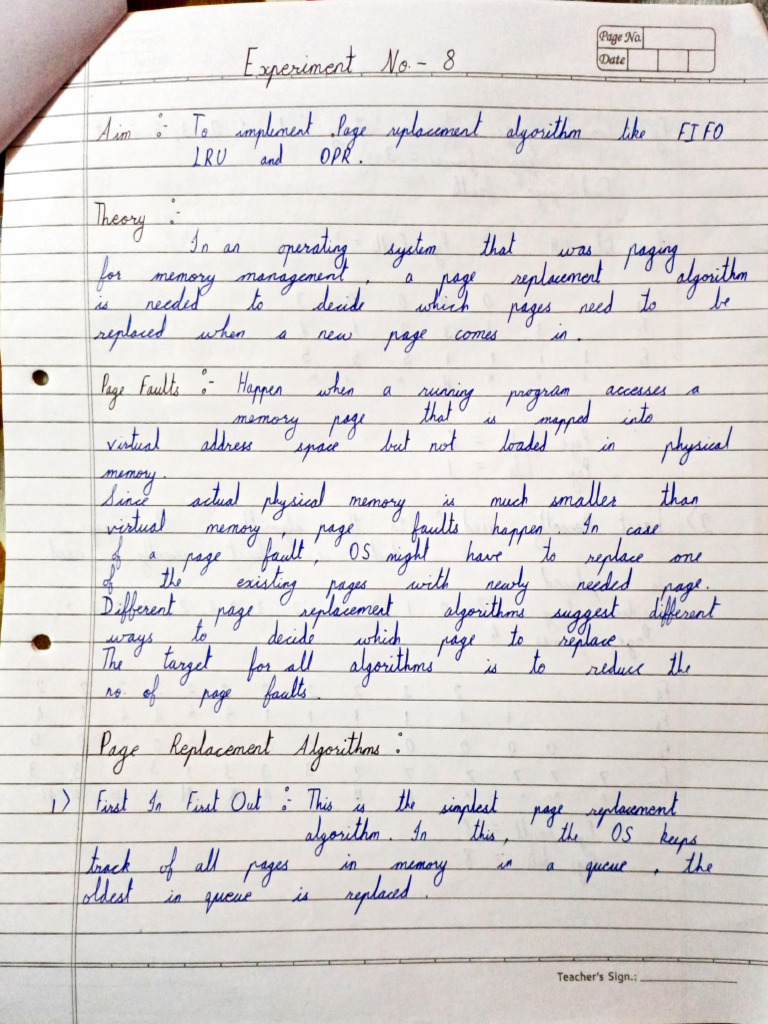 Page No.
Date
Experiment No. - 8
Aim :- To implement Page replacement algorithm like FIFO
LRU and OPR.
Theory :-
In an operating system that was paging
for memory management, a page replacement algorithm
is needed to decide which pages need to be
replaced when a new page comes in.
Page Faults :- Happen when a running program accesses a
memory page that is mapped into
virtual address space but not loaded in physical
memory.
Since actual physical memory is much smaller than
virtual memory, page faults happen In case
of a page fault, OS might have to replace one
of the existing pages with newly needed page.
Different page replacement algorithms suggest different
ways to decide which page to replace
The target for all algorithms is to reduce the
no. of page faults.
Page Replacement Algorithms :
1) First In First Out :- This is the simplest page replacement
algorithm. In this, the OS keeps
track of all pages in memory in a queue, the
oldest in queue is replaced.
Teacher's Sign.: